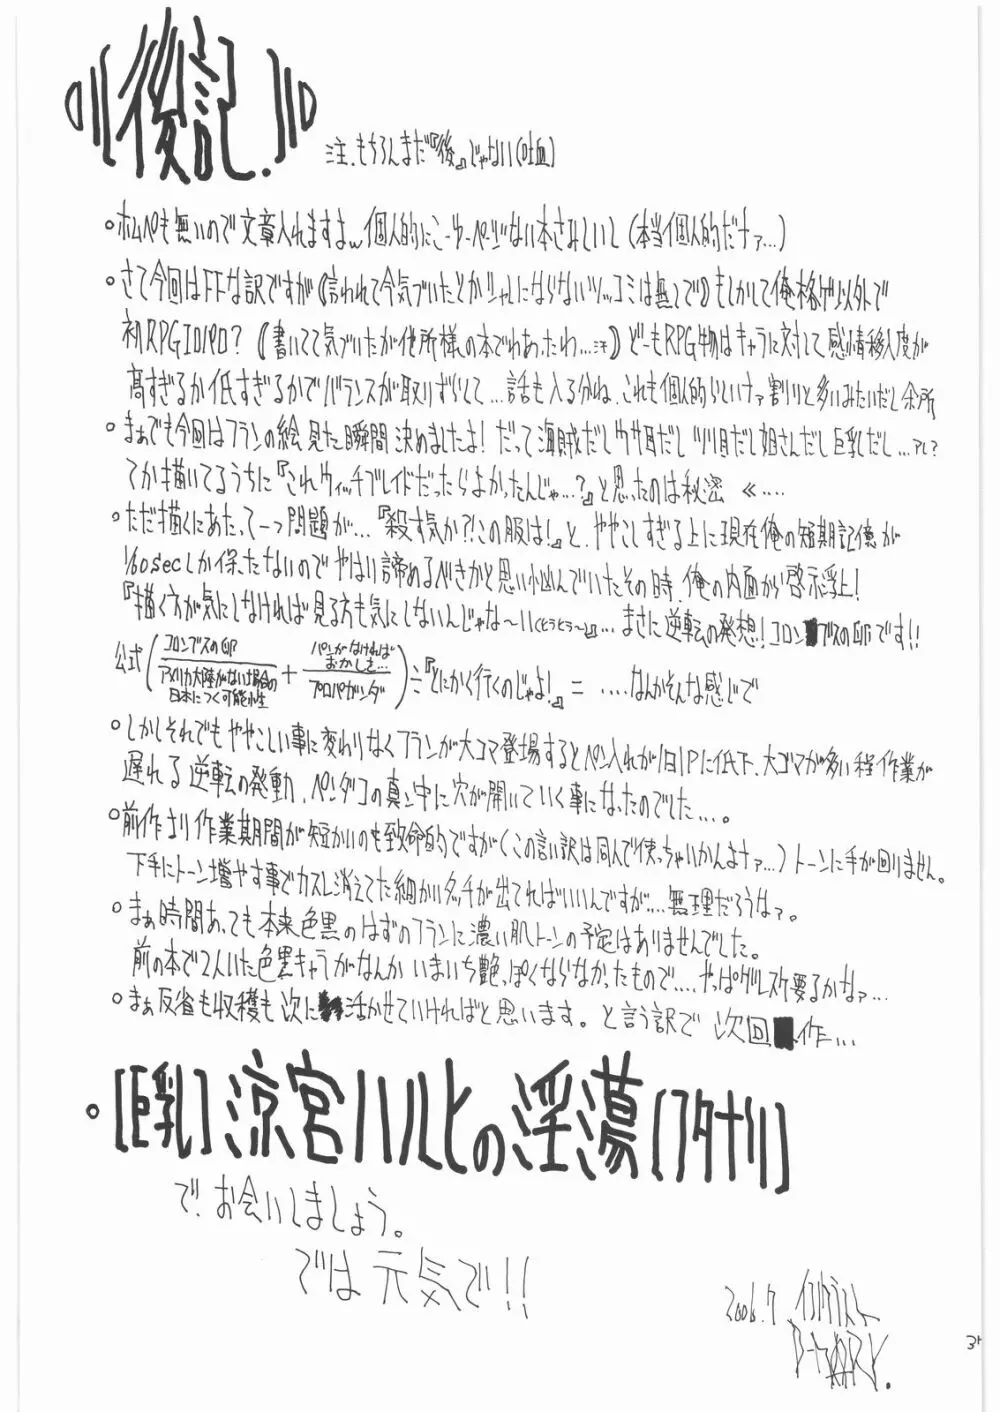 後記.
注.もちろんまだ『後』じゃない(吐血)
。ホムペも無いので文章入れますよw 個人的にこーゆーページない本さみしいし(本当個人的だナァ…)
。さて今回はFFな訳ですが(言われて今気づいたとかシャレにならないツッコミは無しで)もしかして俺、格ゲー以外で
初RPGエロパロ?(書いてて気づいたが他所様の本でわあったわ…汗)どーもRPG物はキャラに対して感情移入度が
高すぎるか低すぎるかでバランスが取りずらくて…話も入る分ね、これも個人的らしいナァ 割りと多いみたいだし余所
。まぁでも今回はフランの絵見た瞬間決めましたよ!だって海賊だしウサ耳だしツリ目だし姐さんだし巨乳だし…アレ?
てか描いてるうちに『これウィッチブレイドだったらよかったんじゃ…?』と思ったのは秘密《‥‥
。ただ描くにあたって一つ問題が…『殺す気か?!この服は!』と、ややこしすぎる上に現在俺の短期記憶が
1/60secしか保たないのでやはり諦めるべきかと思い悩んでいたその時、俺の内面から啓示浮上!
『描く方が気にしなければ見る方も気にしないんじゃな〜い(とうとう〜)』…まさに逆転の発想!コロンブスの卵です!!
公式(コロンブスの卵/アメリカ大陸がない場合の日本につく可能性+パンがなければおかしを…/プロパガンダ)÷『とにかく行くのじゃよ!』=‥‥なんかそんな感じで
。しかしそれでもややこしい事に変わりなくフランが大コマ登場するとペン入れが1日1Pに低下、大ゴマが多い程作業が
遅れる逆転の発動、ペンダコの真ン中に穴が開いていく事になったのでした…。
。前作より作業期間が短かいのも致命的ですが(この言い訳は同人で使っちゃいかんよナァ…)トーンに手が回りません。
下手にトーン増やす事でカスレ消えてた細かいタッチが出てればいいんですが‥‥無理だろうなァ。
。まぁ時間あっても本来色黒のはずのフランに濃い肌トーンの予定はありませんでした。
前の本で2人いた色黒キャラがなんかいまいち艶っぽくならなかったもので‥‥やっぱグレスケ要るかなァ…
。まぁ反省も収穫も次に活かせていければと思います。と言う訳で次回作…
。[巨乳]涼宮ハルヒの淫蕩[フタナリ]
で、お会いしましょう。
では元気で!!
2006.7